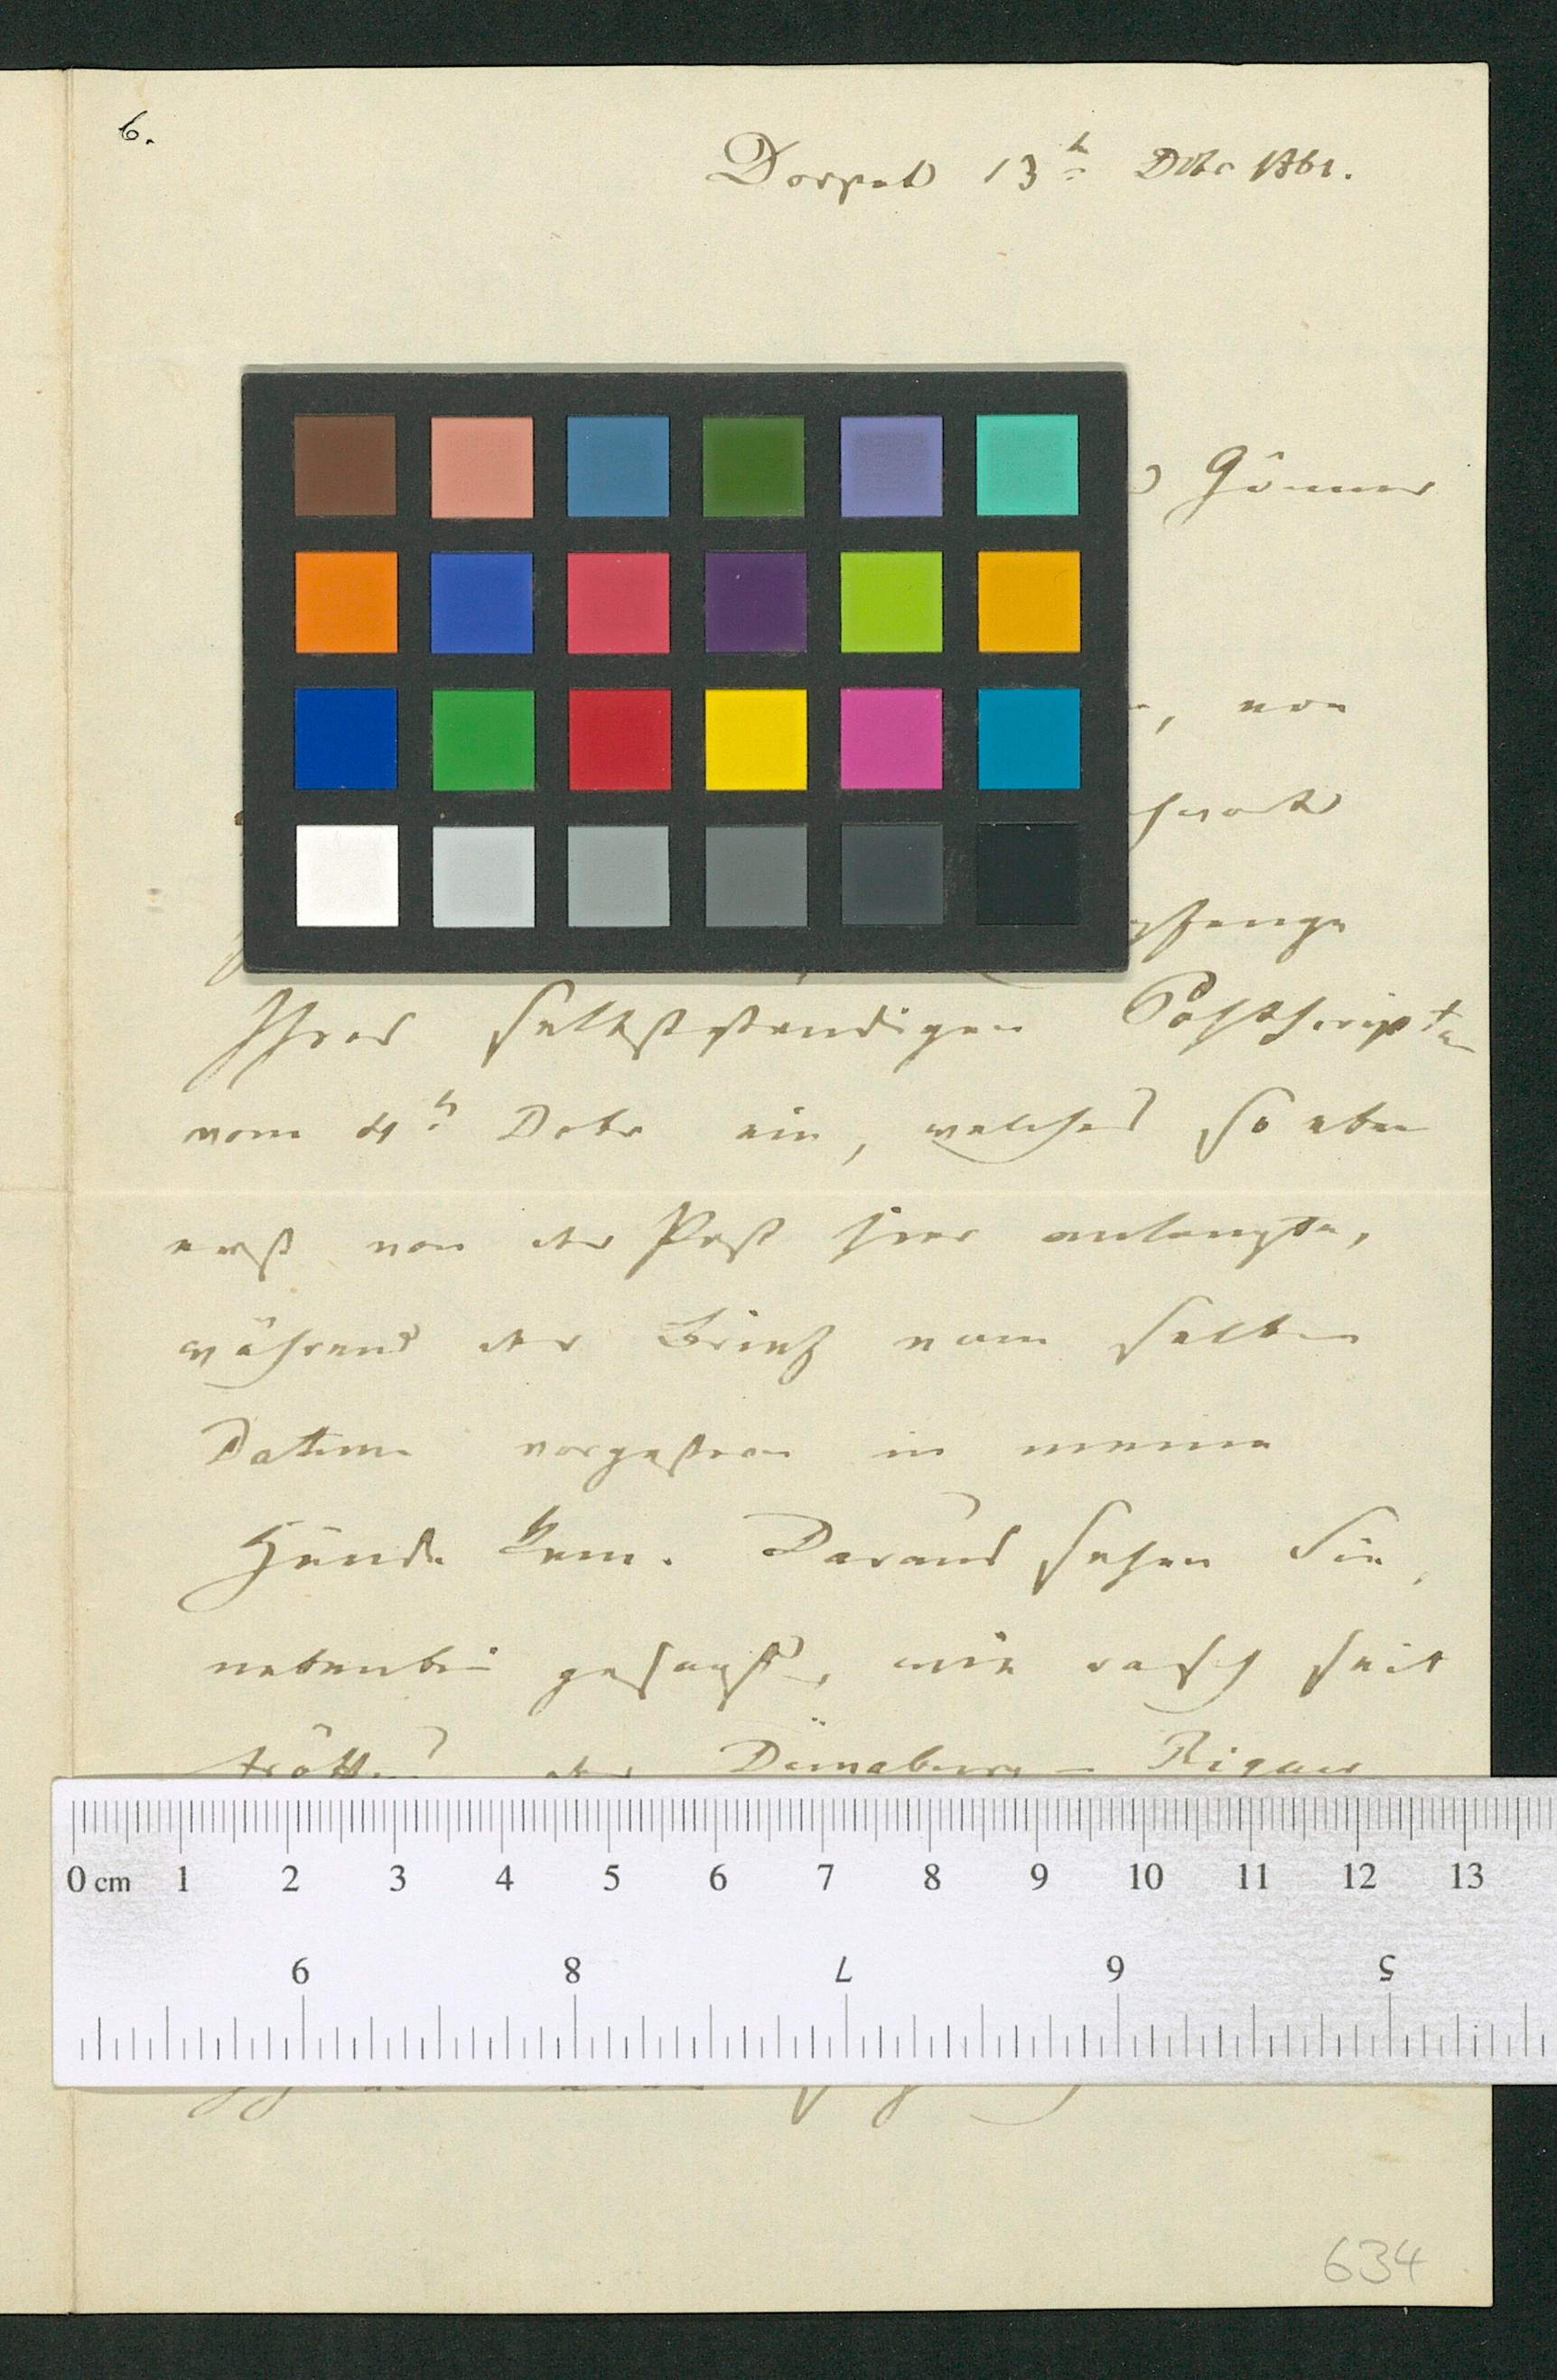 6.
Dorpat 13n Dbr 1861.
Gönner
, von
pfange
Ihres selbstständigen Postscriptes
vom 4n Debr ein, welches so eben
erst von der Post hier anlangte,
während der Brief vom selben
Datum vorgestern in meine
Hände kam. Daraus sehen Sie,
nebenbei gesagt, wie rasch seit
der Dünaburg - Rigaer
0 cm 1 2 3 4 5 6 7 8 9 10 11 12 13
9 8 7 6 5
634